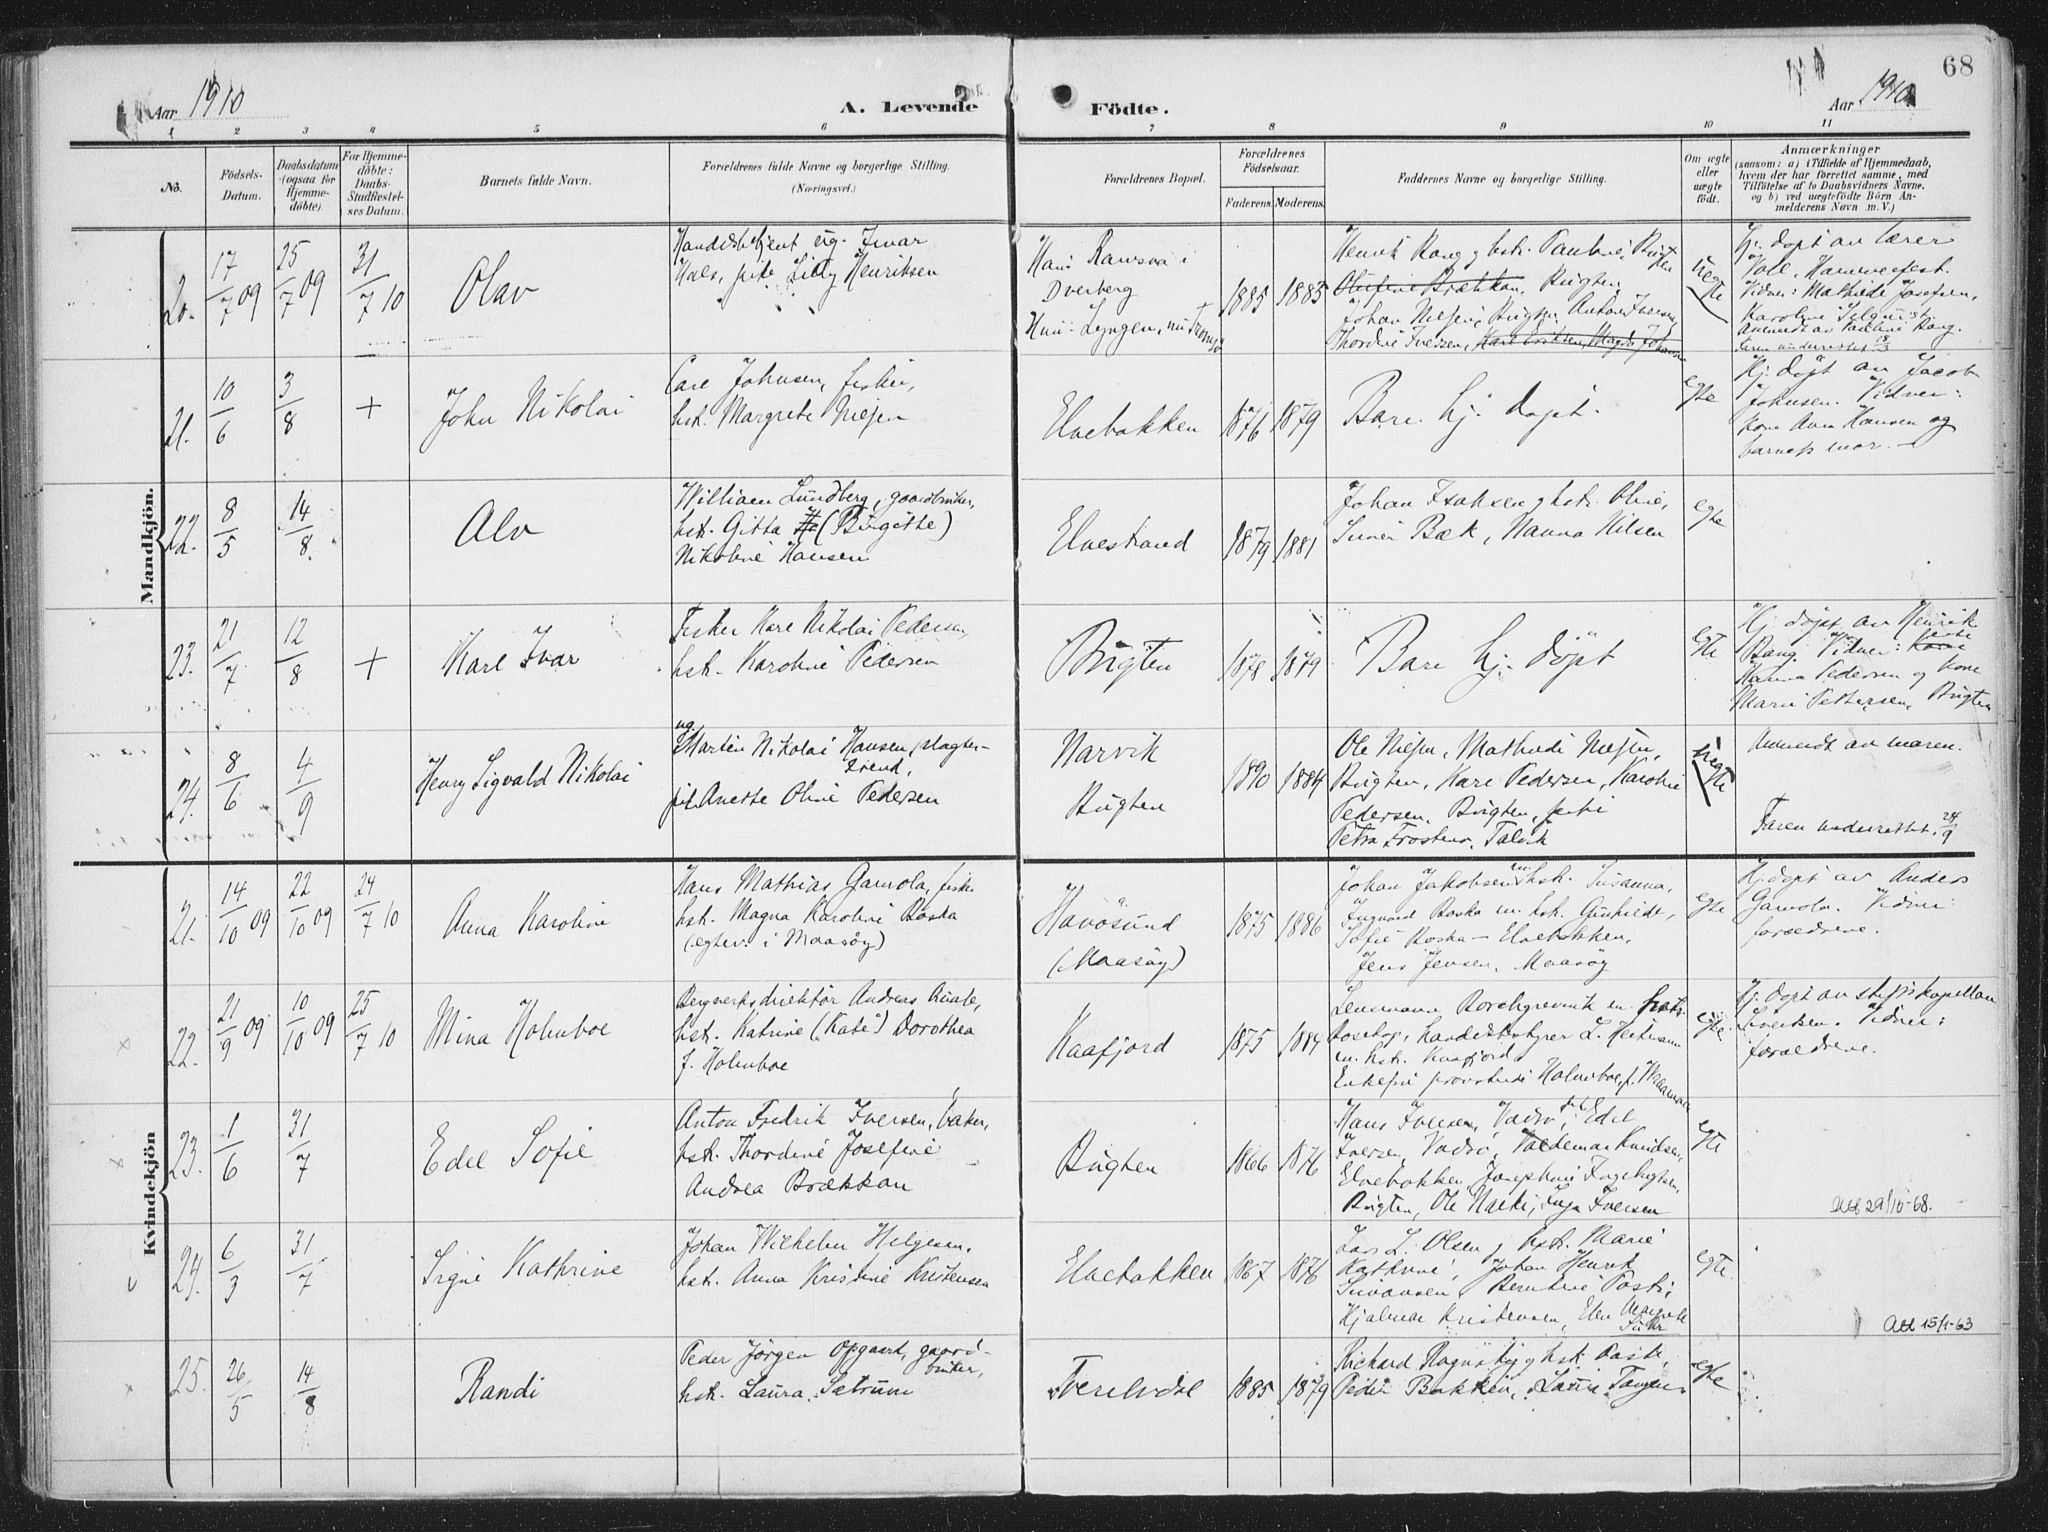 68
Aar 1910
A. Levende
Födte.
Aar 1910
1 2 3 4 5 6 7 8 9 10 11
No.
Födsels-
Datum.
Daabsdatum
(ogsaa for
Hjemme-
döbte).
For Hjemme-
döbte:
Daabs-
Stadfæstel-
ses Datum.
Barnets fulde Navn.
Forældrenes fulde Navne og borgerlige Stilling.
(Næringsvei.)
Forældrenes Bopæl.
Forældrenes
Födselsaar.
Faderens. Moderens.
Faddernes Navne og borgerlige Stilling.
Om ægte
eller
uægte
födt.
Anmærkninger
(saasom: a) i Tilfælde af Hjemmedaab,
hvem der har forrettet samme, med
Tilföielse af to Daabsvidners Navne,
og b) ved uægtefödte Börn An-
melderens Navn m. V.)
Mandkjön.
20. 17/7 09 25/7 09 31/7 10
Olav
Handelsbetjent ug. Ivar
Hals, pike Lilly Henriksen
Dverberg
Lyngen, nu Tromsö
1885 1885
Johan Nilsen, Bugten, Anton Iversen,
Thordine Iversen,
uegte
Hj. döpt av lærer
Vole, Hammerfest.
Vidner: Mathilde Josefsen,
Anmeldt av Pauline Bang.
Faren underrettet 18/3
21. 10/6 3/8 +
John Nikolai
Carl Johnsen, fisker,
hst. Margrete Nilsen
Elvebakken
1876 1879
Bare hj. döpt.
egte
Hj. döpt av Jacob
Johnsen. Vidner:
kone Anna Hansen og
barnets mor.
22. 8/5 14/8
Alv
William Lundberg, gaardbruker,
hst. Gitta (Birgitte)
Nikoline Hansen
Elvestrand
1879 1881
Johan Isaksen og hst. Oline,
Bæk, Nanna Nilsen
egte
23. 21/7 12/8 +
Karl Ivar
Fisker Karl Nikolai Pedersen,
hst. Karoline Pedersen
Bugten
1878 1879
Bare hj. döpt
egte
Hj. döpt av Henrik
Bang. Vidner:
Hanna Pedersen og kone
Marie Pettersen, Bugten
24. 8/6 4/9
Henry Sigvald Nikolai
ug. Martin Nikolai Hansen, slagter-
svend,
pi. Anette Oline Pedersen
Narvik
Bugten
1890 1884
Ole Nilsen, Mathilde Nilsen,
Bugten, Karl Pedersen, Karoline
Pedersen, Bugten, pike
Petra Talvik
uegte
Anmeldt av moren.
Faren underrettet 24/9
Kvindekjön
21. 14/10 09 22/10 09 24/7 10
Anna Karoline
Hans Mathias Gamola, fisker
hst. Magna Karoline Boska
(egtev. i Maasöy)
Havösund
(Maasöy)
1875 1886
Johan Jakobsen m. hst. Susanna,
Ingvard Boska m. hst. Gunhilde,
Sofie Boska – Elvebakken,
Jens Jensen, Maasöy
egte
Hj. döpt av Anders
Gamola. Vidner:
forældrene.
22. 21/9 09 10/10 09 25/7 10
Mina Holmboe
Bergverksdirektör Andreas Quale,
hst. Katrine ("Kate") Dorothea
f. Holmboe
Kaafjord
1875 1884
Lensmann Borchgrevink m. hst.
Bosekop, Handelsbestyrer L. Heitmann
m. hst. Kaafjord,
Enkefru provstinde Holmboe, f.
egte
Hj. döpt av stiftskapellan
Sivertsen. Vidner:
forældrene.
23. 1/6 31/7
Edel Sofie
Anton Fredrik Iversen, baker,
hst. Thordine Josefine
Andrea Brækkan
Bugten
1866 1876
Hans Iversen, Vadsö, Edel
Iversen, Vadsö, Valdemar Knudsen,
Elvebakken, Josephine Ingebrigtsen,
Bugten, Ole Inga Iversen
egte
Att 29/10-68.
24. 6/3 31/7
Signe Kathrine
Johan Wilhelm Helgesen,
hst. Anna Kristine Kristensen
Elvebakken
1867 1876
Lars L. Olsen og hst. Marie
Kathrine, Johan Henrik
Bernhard
Hjalmar Kristensen, Elen Margrete
Suhr
egte
Att 15/1-63
25. 26/5 14/8
Randi
Peder Jörgen Opgaard, gaard-
bruker,
hst. Laura Sætrum
Tverelvdal
1885 1879
Richard og hst.
Peder Bakken, Laura
egte